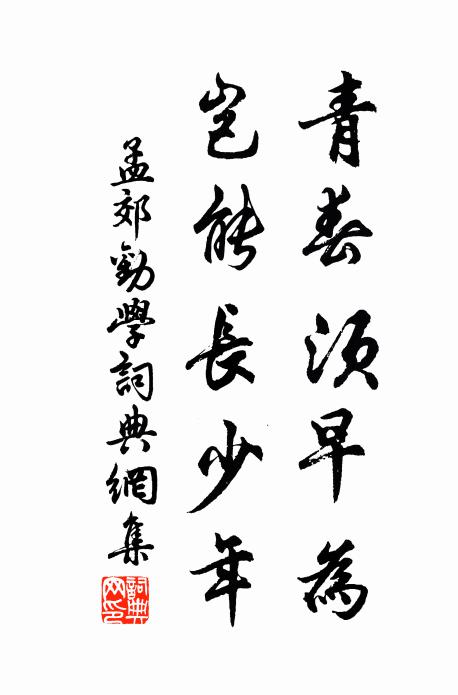 青春須早為
豈能長少年
孟郊勸學詞典網集
詞典網印